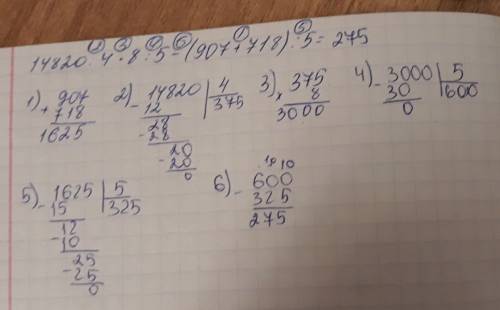 14820:4·8:5-(907+718):5=275
1) 907 2) 14820 | 4 3) 375 4) 3000 | 5
+ 718 - 12 | 375 × 8 - 30 | 600
1625 28 3000 0
- 28
20
- 20
0
5) 1625 | 5 6) 600
- 15 | 325 - 325
12 275
- 10
25
- 25
0